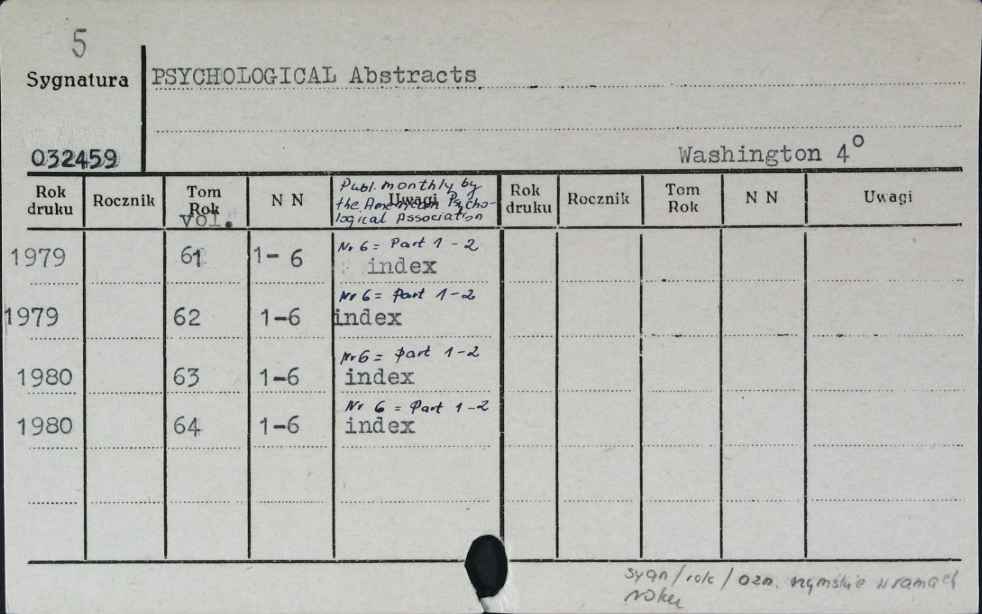 5
Sygnatura
PSYCHOLOGICAL Abstracts
032459
Washington 4°
Rok druku Rocznik Tom Rok vol. N N Uwagi Publ. monthly by the American Psychological Association Rok druku Rocznik Tom Rok N N Uwagi
1979 61 1-6 Nr 6 = Part 1-2
index
1979 62 1-6 Nr 6 = Part 1-2
index
1980 63 1-6 Nr 6 = Part 1-2
index
1980 64 1-6 Nr 6 = Part 1-2
index
sygn/rok/ozn. rzymskie w ramach
roku